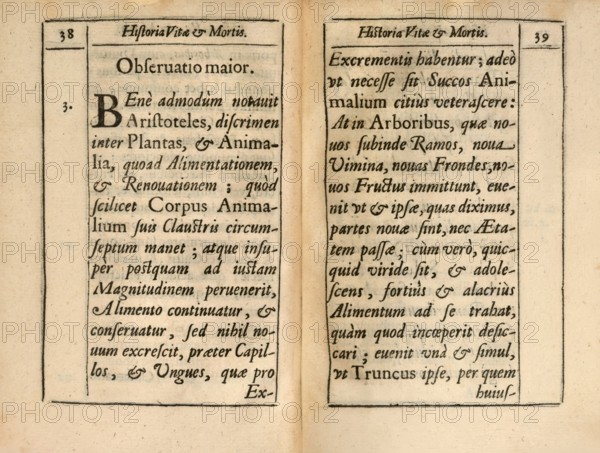 38
Historia Vitæ & Mortis.
Obseruatio maior.
3.
BEnè admodùm notauit
Aristoteles, discrimen
inter Plantas, & Anima-
lia, quoad Alimentationem,
& Renouationem ; quòd
scilicet Corpus Anima-
lium suis Claustris circum-
septum manet ; atque insu-
per postquam ad iustam
Magnitudinem peruenerit,
Alimento continuatur, &
conseruatur, sed nihil no-
uum excrescit, præter Capil-
los, & Vngues, quæ pro
Ex-
Historia Vitæ & Mortis.
39
Excrementis habentur ; adeò
vt necesse sit Succos Ani-
malium citiùs veterascere :
At in Arboribus, quæ no-
uos subinde Ramos, noua
Vimina, nouas Frondes, no-
uos Fructus immittunt, eue-
nit vt & ipsæ, quas diximus,
partes nouæ sint, nec Æta-
tem passæ ; cùm verò, quic-
quid viride sit, & adole-
scens, fortiùs & alacriùs
Alimentum ad se trahat,
quàm quod incœperit desic-
cari ; euenit vnà & simul,
vt Truncus ipse, per quem
huius-
PHOTO12